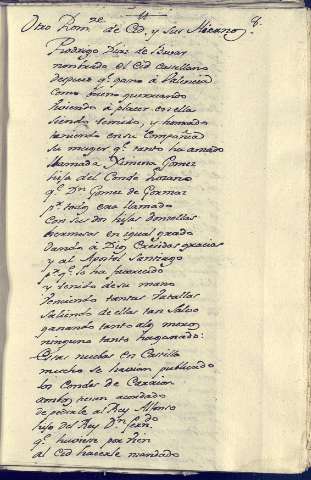 8.
Otro Rom.ce de Cid, y sus Hieranos
Rodrigo Diaz de Bivar
nombrado el Cid Castellano
despues q.e gano a Valencia
como bueno guerreando
viviendo a placer con ella
siendo temido, y honrrado
teniendo en su Compañia
Su muger q.e tanto ha amado
llamada Ximena Gomez
hija del Conde Lozano
q.e D.n Gomez de Gormaz
p.r todos era llamado
con sus dos hijas donzellas
hermosas en igual grado
dando á Dios Crecidas gracias
y al Apostol Santiago
p.r q.e lo ha favorecido
y tenido de su mano
Venciendo tantas Batallas
saliendo de ellas tan Salvo
ganando tanto alos moros
ninguno tanto ha ganado:
Estas nuebas en Castilla
mucho se havian publicado
los Condes de Carrion
ambos havian acordado
de pedirle al Rey Alfonso
hijo del Rey D.n Fern.do
q.e huviese por vien
al Cid hacerle mandado